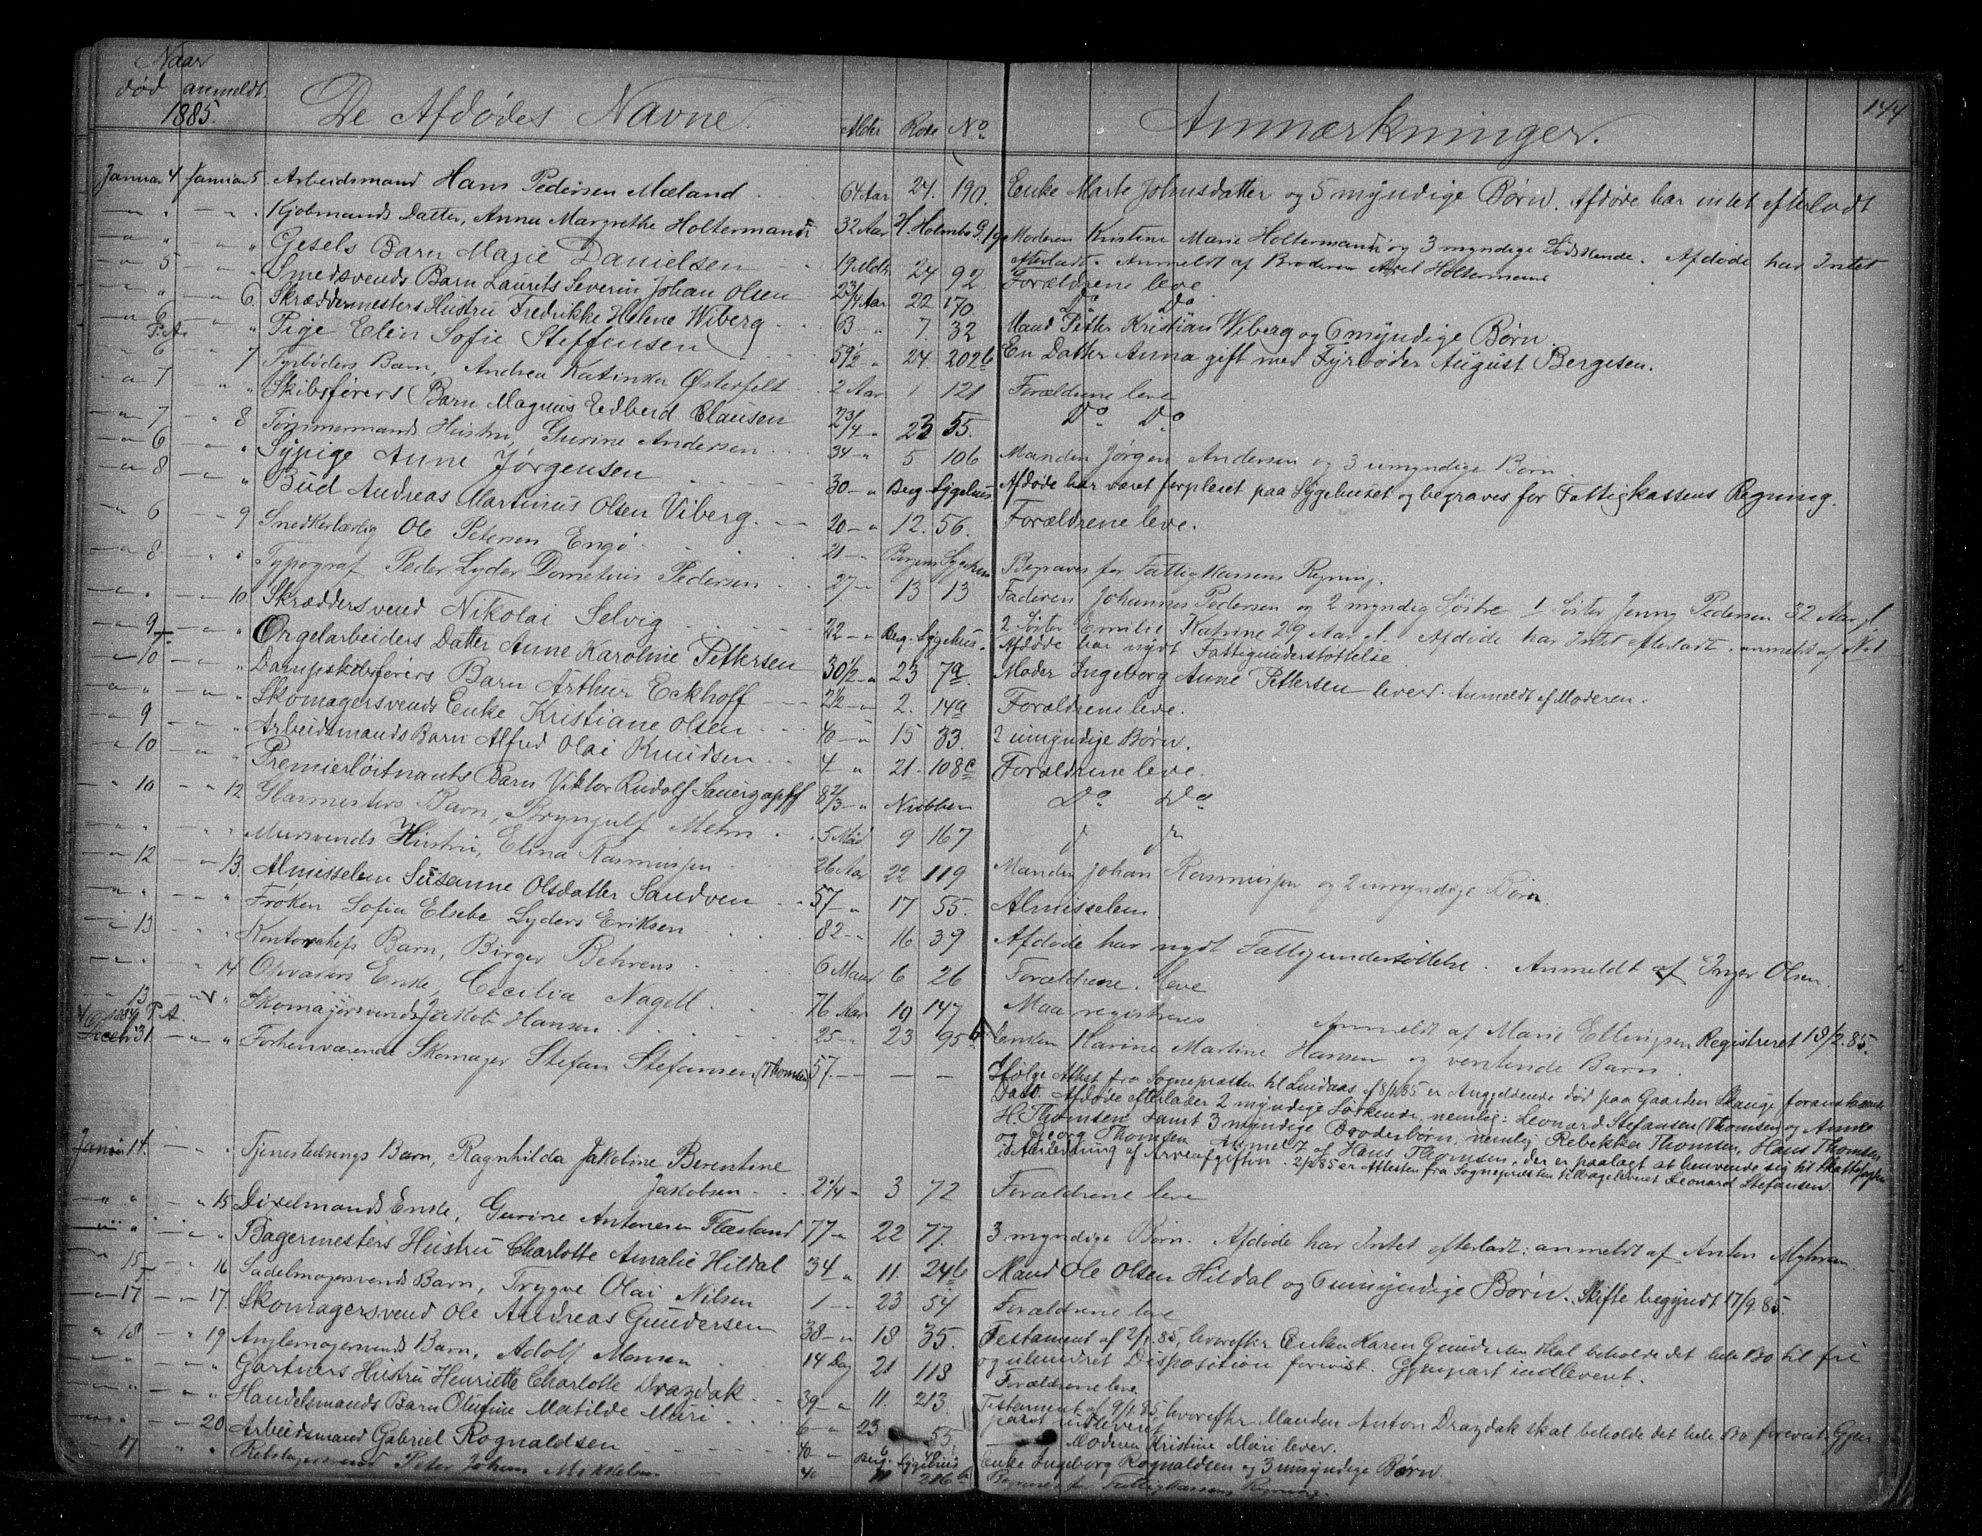 Naar
død anmeldt.
1885.
De Afdødes Navne.
Alder Rode No
Anmærkninger.
144
Januar 4 Januar 5 Arbeidsmand Hans Pedersen Mæland 64 Aar 24. 190. Enke Marte Johnsdatter og 5 myndige Børn. Afdøde har intet efterladt
Kjøbmands Datter, Anna Margrethe Holtermann 32 Aar Moderen Kristine Marie Holtermann og 3 myndige Sødskende. Afdøde har Intet
efterladt. Anmeldt af Broderen Axel Holtermann
Gesels Barn Marie Danielsen 19 Mdr 24 92 Forældrene leve
5 Smedsvends Barn Laurits Severin Johan Olsen 2 3/4 Aar 22 170 Do Do
6 Skræddermesters Hustru Fredrikke Helene Wiberg 63 7. 32 Mand Petter Kristian Wiberg og 6 myndige Børn.
6 Pige Elen Sofie Steffensen 59 1/2 24. 202b En Datter Anna gift med Fyrbøder August Bergesen.
6 7 Fyrbøders Barn, Andrea Katinka Østerfelt 2 Aar 1 121 Forældrene leve
7 Skibsførers Barn Magnus Edberd Clausen 2 3/4 23 55. Do Do
7 8 Tømmermands Hustru, Gurine Andersen 34 5 106 Manden Jørgen Andersen og 3 umyndige Børn.
6 Sypige Anne Jørgensen 30 Berg. Sygehus Afdøde har været forpleiet paa Sygehuset og begraves for Fattigkassens Regning.
8 Bud Andreas Martinus Olsen Viberg. 20 12. 56. Forældrene leve.
6 9 Snedkerlærlig Ole Petersen Engø 21 Bergens Sygehus Begraves for Fattigkassens Regning.
8 Typograf Peder Lyder Dometius Pedersen 27 13 13 Faderen Johannes Pedersen og 2 myndig Søstre 1 Søster Jenny Pedersen 32 Aar gl.
2 Søster Emilie Katrine 29 Aar gl. Afdøde har Intet efterladt. anmeldt af No 1
10 Skræddersvend Nikolai Selvig 22 Berg. Sygehus. Afdøde har nydt Fattigunderstøttelse.
9 Orgelarbeiders Datter Anne Karoline Pettersen 30 1/2 23 7a Moder Ingeborg Anne Pettersen lever. Anmeldt af Moderen.
10 Dampskibsførers Barn Arthur Eckhoff 2 1/2 2. 14a Forældrene leve.
Skomagersvends Enke Kristiane Olsen 40 15 33. 2 umyndige Børn.
9 Arbeidsmands Barn Alfred Olai Knudsen 4 21. 108c Forældrene leve.
10 Premierløitnants Barn Viktor Rudolf Sauerzapff 8 2/3 Nubben Do Do
10 12 Glasmesters Barn, Brynjulf Mehn 5 Mdr 9 167
Mursvends Hustru, Elina Rasmussen 26 Aar 22 119 Manden Johan Rasmussen og 2 umyndige Børn
12 13. Almisselem Susanne Olsdatter Sandven 57 17 55. Almisselem.
Frøken Sofia Elsebe Lyders Eriksen 82 16 39 Afdøde har nydt Fattigunderstøttelse. Anmeldt af Inger Olsen.
13 Kontorchefs Barn, Birger Behrens 6 Maan 6 26 Forældrene leve
14 Opvarters Enke, Cecilia Nagell 76 Aar 19 147 Maa registreres Anmeldt af Marie Ellingsen Registreret 13/2.85.
13 Skomagersvend Jakob Hansen 25 23 95b Enken Karine Martine Hansen og ventende Barn.
Decbr 31 Forhenværende Skomager Stefan Stefansen (Thomsen) 57. — — Ifølge Attest fra Sognepræsten til Lindaas af 8/1 85 er Angjeldende død paa Gaarden Skauge foranstaaende
Dato. Afdøde efterlader 2 myndige Søskende, nemlig: Leonard Stefansen (Thomsen) og Anne
H. Thomsen, samt 3 myndige Broderbørn, nemlig Rebekka Thomsen, Hans Thomsen
og Georg Thomsen Anmeldt af Hans Thomsen, der er paalagt at henvende sig til Skattefogden
i Anledning af Arveafgiften. 2/2 85 er Attesten fra Sognepræsten tilbageleveret Leonard Stefansen.
Januar 14. Tjenestedrengs Barn, Ragnhilda Jakobine Berentine
Jakobsen 2 1/4 3 72 Forældrene leve
15 Dixelmands Enke, Gurine Antonesen Flæsland 77 22 77. 3 myndige Børn. Afdøde har Intet efterladt; anmeldt af Anton Myhran.
Bagermesters Hustru Charlotte Amalie Hildal 34 11. 24b Mand Ole Olsen Hildal og 6 umyndige Børn. Skifte begyndt 17/9.85.
15 16 Sadelmagersvends Barn, Trygve Olai Nilsen 1 23 54 Forældrene leve
17 17. Skomagersvend Ole Andreas Gundersen 38 18 35. Testament af 2/1.85, hvorefter Enken Karen Gundersen skal beholde det hele Bo til fri
og uhindret Disposition forevist. Gjenpart indleveret.
18 19 Barn, Adolf Monsen 14 Dag 21 118 Forældrene leve
Gartners Hustru Henriette Charlotte Drazdak 39 11. 213. Testament af 9/1.85, hvorefter Manden Anton Drazdak skal beholde det hele Bo forevist. Gjen-
part indleveret
Handelsmands Barn Olufine Matilde Mari 6 23 55. Moderen Kristine Mari lever.
20 Arbeidsmand Gabriel Rognaldsen 40 Berg. Sygehus Enke Ingeborg Rognaldsen og 3 umyndige Børn.
17 Rebslagersvend Peter Johan Mikkelsen 40 216b Begraves for Fattigkassens Regning.